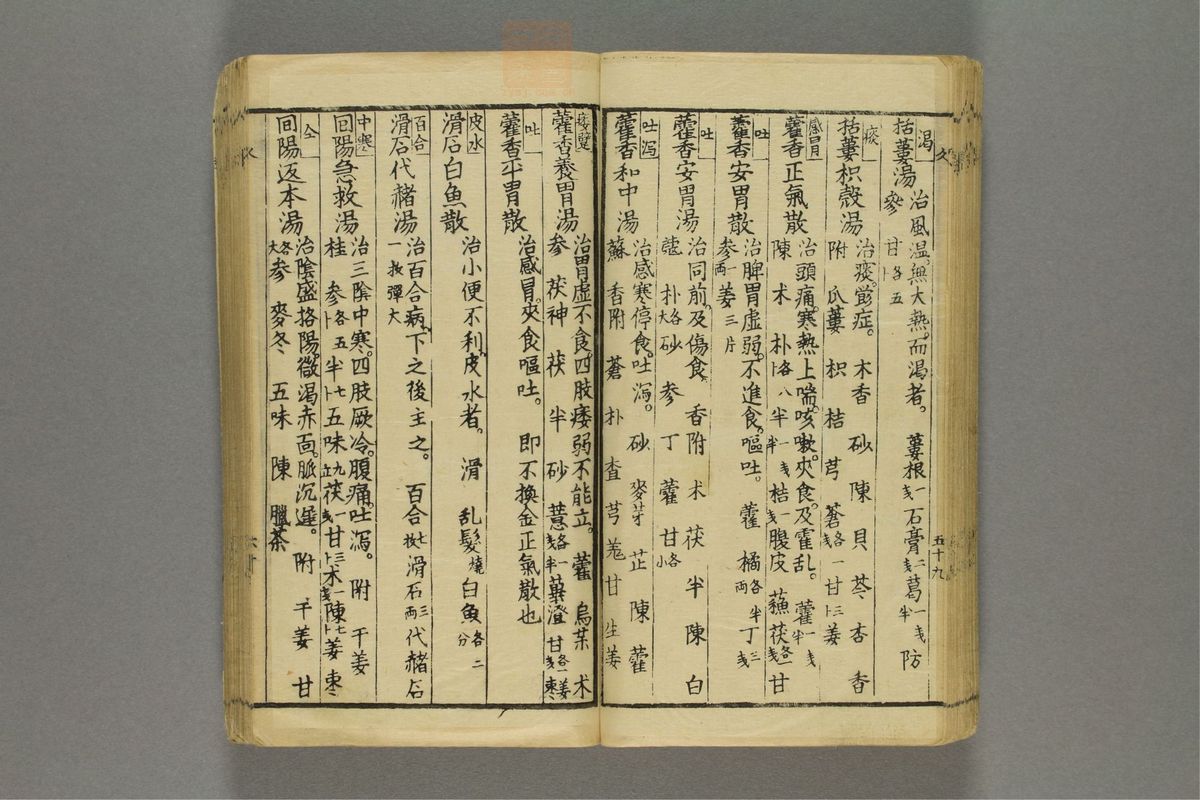 久
五十九
渴
括蔞湯
治風溫。無大熱。而渴者。 蔞根戔一 石膏戔二 葛一戔半 防
參 甘各五卜
痰
括蔞枳殼湯
治痰。鬱症。 木香 砂 陳 貝 芩 杏 香
附 瓜蔞 枳 桔 芎 蒼各一戔 甘三卜 姜
感冒
藿香正氣散
治頭痛。寒熱上喘。咳嗽。夾食。及霍乱。 藿一戔半
陳 术 朴各八卜 半一戔半 桔一戔 腹皮 蘓 茯各一戔 甘
吐
藿香安胃散
治脾胃虛弱。不進食。嘔吐。 藿 橘各半兩 丁三戔
参一兩 姜三片
吐
藿香安胃湯
治同前。及傷食。 香附 术 茯 半 陳 白
蔻 朴各大 砂 参 丁 藿 甘各小
吐瀉
藿香和中湯
治感寒停食。吐瀉。 砂 麥芽 芷 陳 藿
蘇 香附 蒼 朴 查 芎 羗 甘 生姜
痿躄
藿香養胃湯
治胃虛不食。四肢痿弱不能立。 藿 烏茱 术
参 茯神 茯 半 砂 薏各一戔半 蓽澄 甘各一戔 姜 棗
吐
藿香平胃散
治感冒。夾食嘔吐。 即不換金正氣散也
皮水
滑石白魚散
治小便不利。皮水者。 滑 乱髮燒 白魚各二分
百合
滑石代赭湯
治百合病。下之後主之。 百合七枚 滑石三兩 代赭石
一枚彈大
中寒
回陽急救湯
治三陰中寒。四肢厥冷。腹痛。吐瀉。 附 干姜
桂 参各五卜 半七卜 五味九立 茯一戔 甘三卜 术一戔 陳七卜 姜 棗
仝
回陽返本湯
治陰盛挌陽。微渴赤面。脈沉遲。 附 干姜 甘
各大 参 麥冬 五味 陳 臘茶